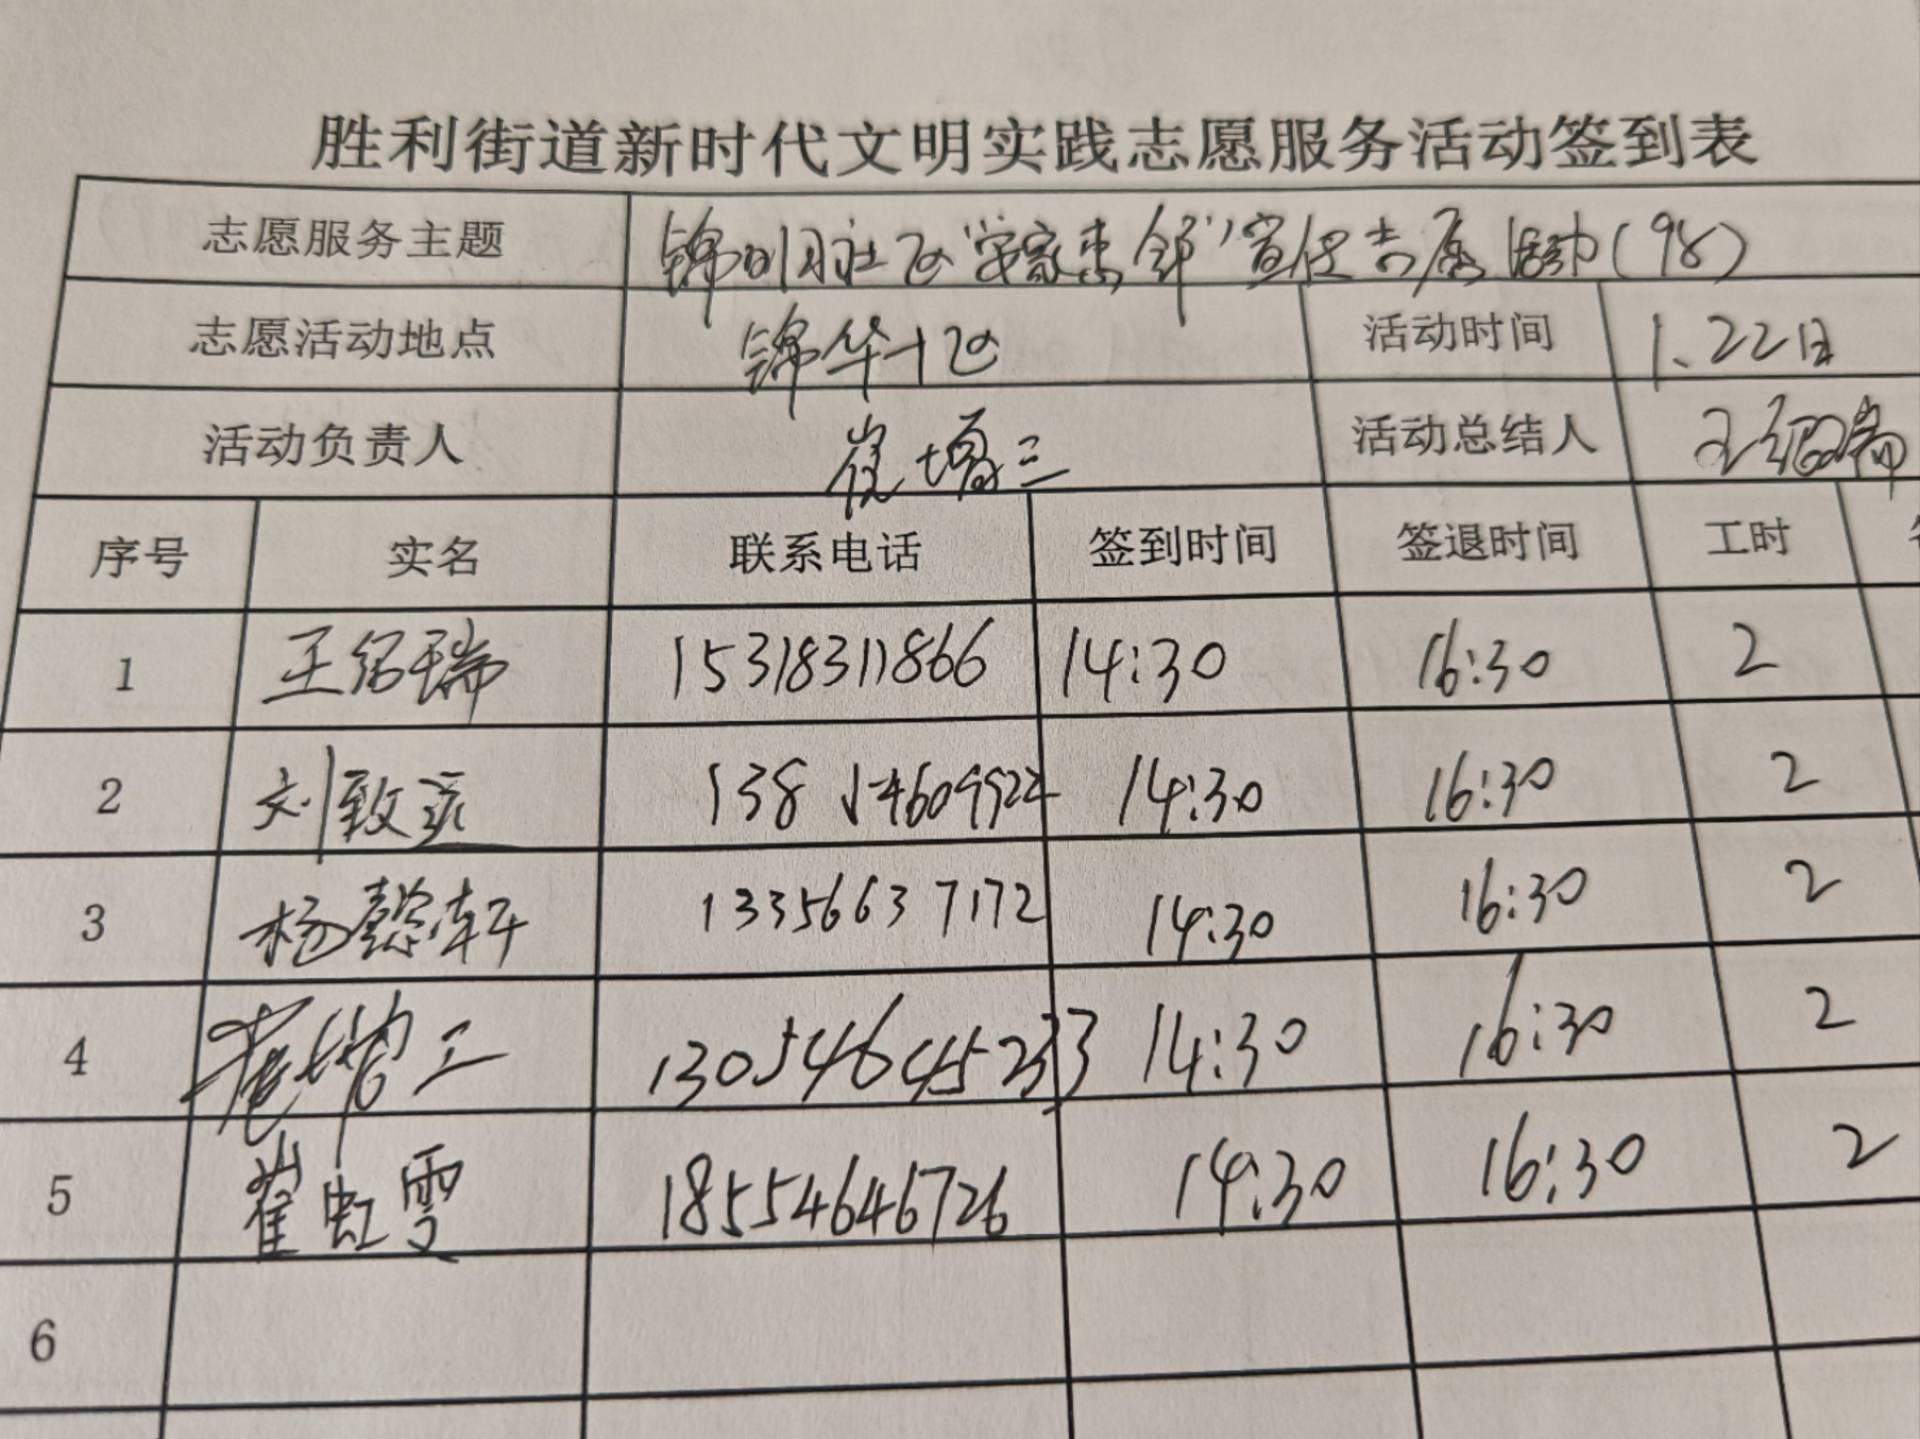 胜利街道新时代文明实践志愿服务活动签到表
志愿服务主题 锦 社区"安家惠邻" 活动(98)
志愿活动地点 锦华十区 活动时间 1.22日
活动负责人 崔增三 活动总结人 王绍瑞
序号 实名 联系电话 签到时间 签退时间 工时
1 王绍瑞 15318311866 14:30 16:30 2
2 刘致 14:30 16:30 2
3 杨懿轩 13356637172 14:30 16:30 2
4 崔增三 13054645233 14:30 16:30 2
5 崔虹雯 18554646726 14:30 16:30 2
6